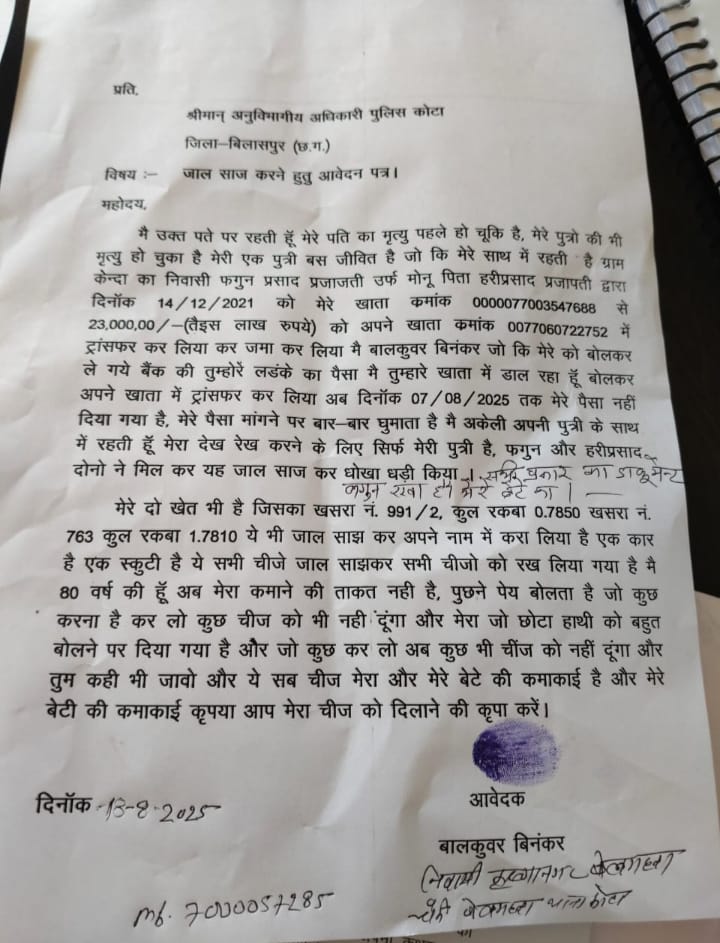 प्रति,
श्रीमान् अनुविभागीय अधिकारी पुलिस कोटा
जिला–बिलासपुर (छ.ग.)
विषय :– जाल साज करने हुतु आवेदन पत्र।
महोदय,
मै उक्त पते पर रहती हूँ मेरे पति का मृत्यु पहले हो चूकि है, मेरे पुत्रो की भी
मृत्यु हो चुका है मेरी एक पुत्री बस जीवित है जो कि मेरे साथ में रहती है ग्राम
केन्दा का निवासी फगुन प्रसाद प्रजाजती उर्फ मोनू पिता हरीप्रसाद प्रजापती द्वारा
दिनॉक 14/12/2021 को मेरे खाता कमांक 0000077003547688 से
23,000,00/–(तैइस लाख रुपये) को अपने खाता कमांक 0077060722752 में
ट्रांसफर कर लिया कर जमा कर लिया मै बालकुवर बिनंकर जो कि मेरे को बोलकर
ले गये बैंक की तुम्होरें लडंके का पैसा मै तुम्हारे खाता में डाल रहा हूॅ बोलकर
अपने खाता में ट्रांसफर कर लिया अब दिनॉक 07/08/2025 तक मेरे पैसा नहीं
दिया गया है, मेरे पैसा मांगने पर बार–बार घुमाता है मै अकेली अपनी पुत्री के साथ
में रहती हूॅ मेरा देख रेख करने के लिए सिर्फ मेरी पुत्री है, फगुन और हरीप्रसाद
दोनो ने मिल कर यह जाल साज कर धोखा धड़ी किया । सभी प्रकार का डाकुमेन्ट
फगुन रखा है मेरे बेटे का । —
मेरे दो खेत भी है जिसका खसरा नं. 991/2, कुल रकबा 0.7850 खसरा नं.
763 कुल रकबा 1.7810 ये भी जाल साझ कर अपने नाम में करा लिया है एक कार
है एक स्कुटी है ये सभी चीजे जाल साझकर सभी चीजो को रख लिया गया है मै
80 वर्ष की हूॅ अब मेरा कमाने की ताकत नही है, पुछने पेय बोलता है जो कुछ
करना है कर लो कुछ चीज को भी नही दूंगा और मेरा जो छोटा हाथी को बहुत
बोलने पर दिया गया है और जो कुछ कर लो अब कुछ भी चींज को नहीं दूंगा और
तुम कही भी जावो और ये सब चीज मेरा और मेरे बेटे की कमाकाई है और मेरे
बेटी की कमाकाई कृपया आप मेरा चीज को दिलाने की कृपा करें।
दिनॉक 13-8-2025
आवेदक
बालकुवर बिनंकर
निवासी कृष्णानगर बेलगहना
चौकी बेलगहना थाना कोटा
mb. 7000057285